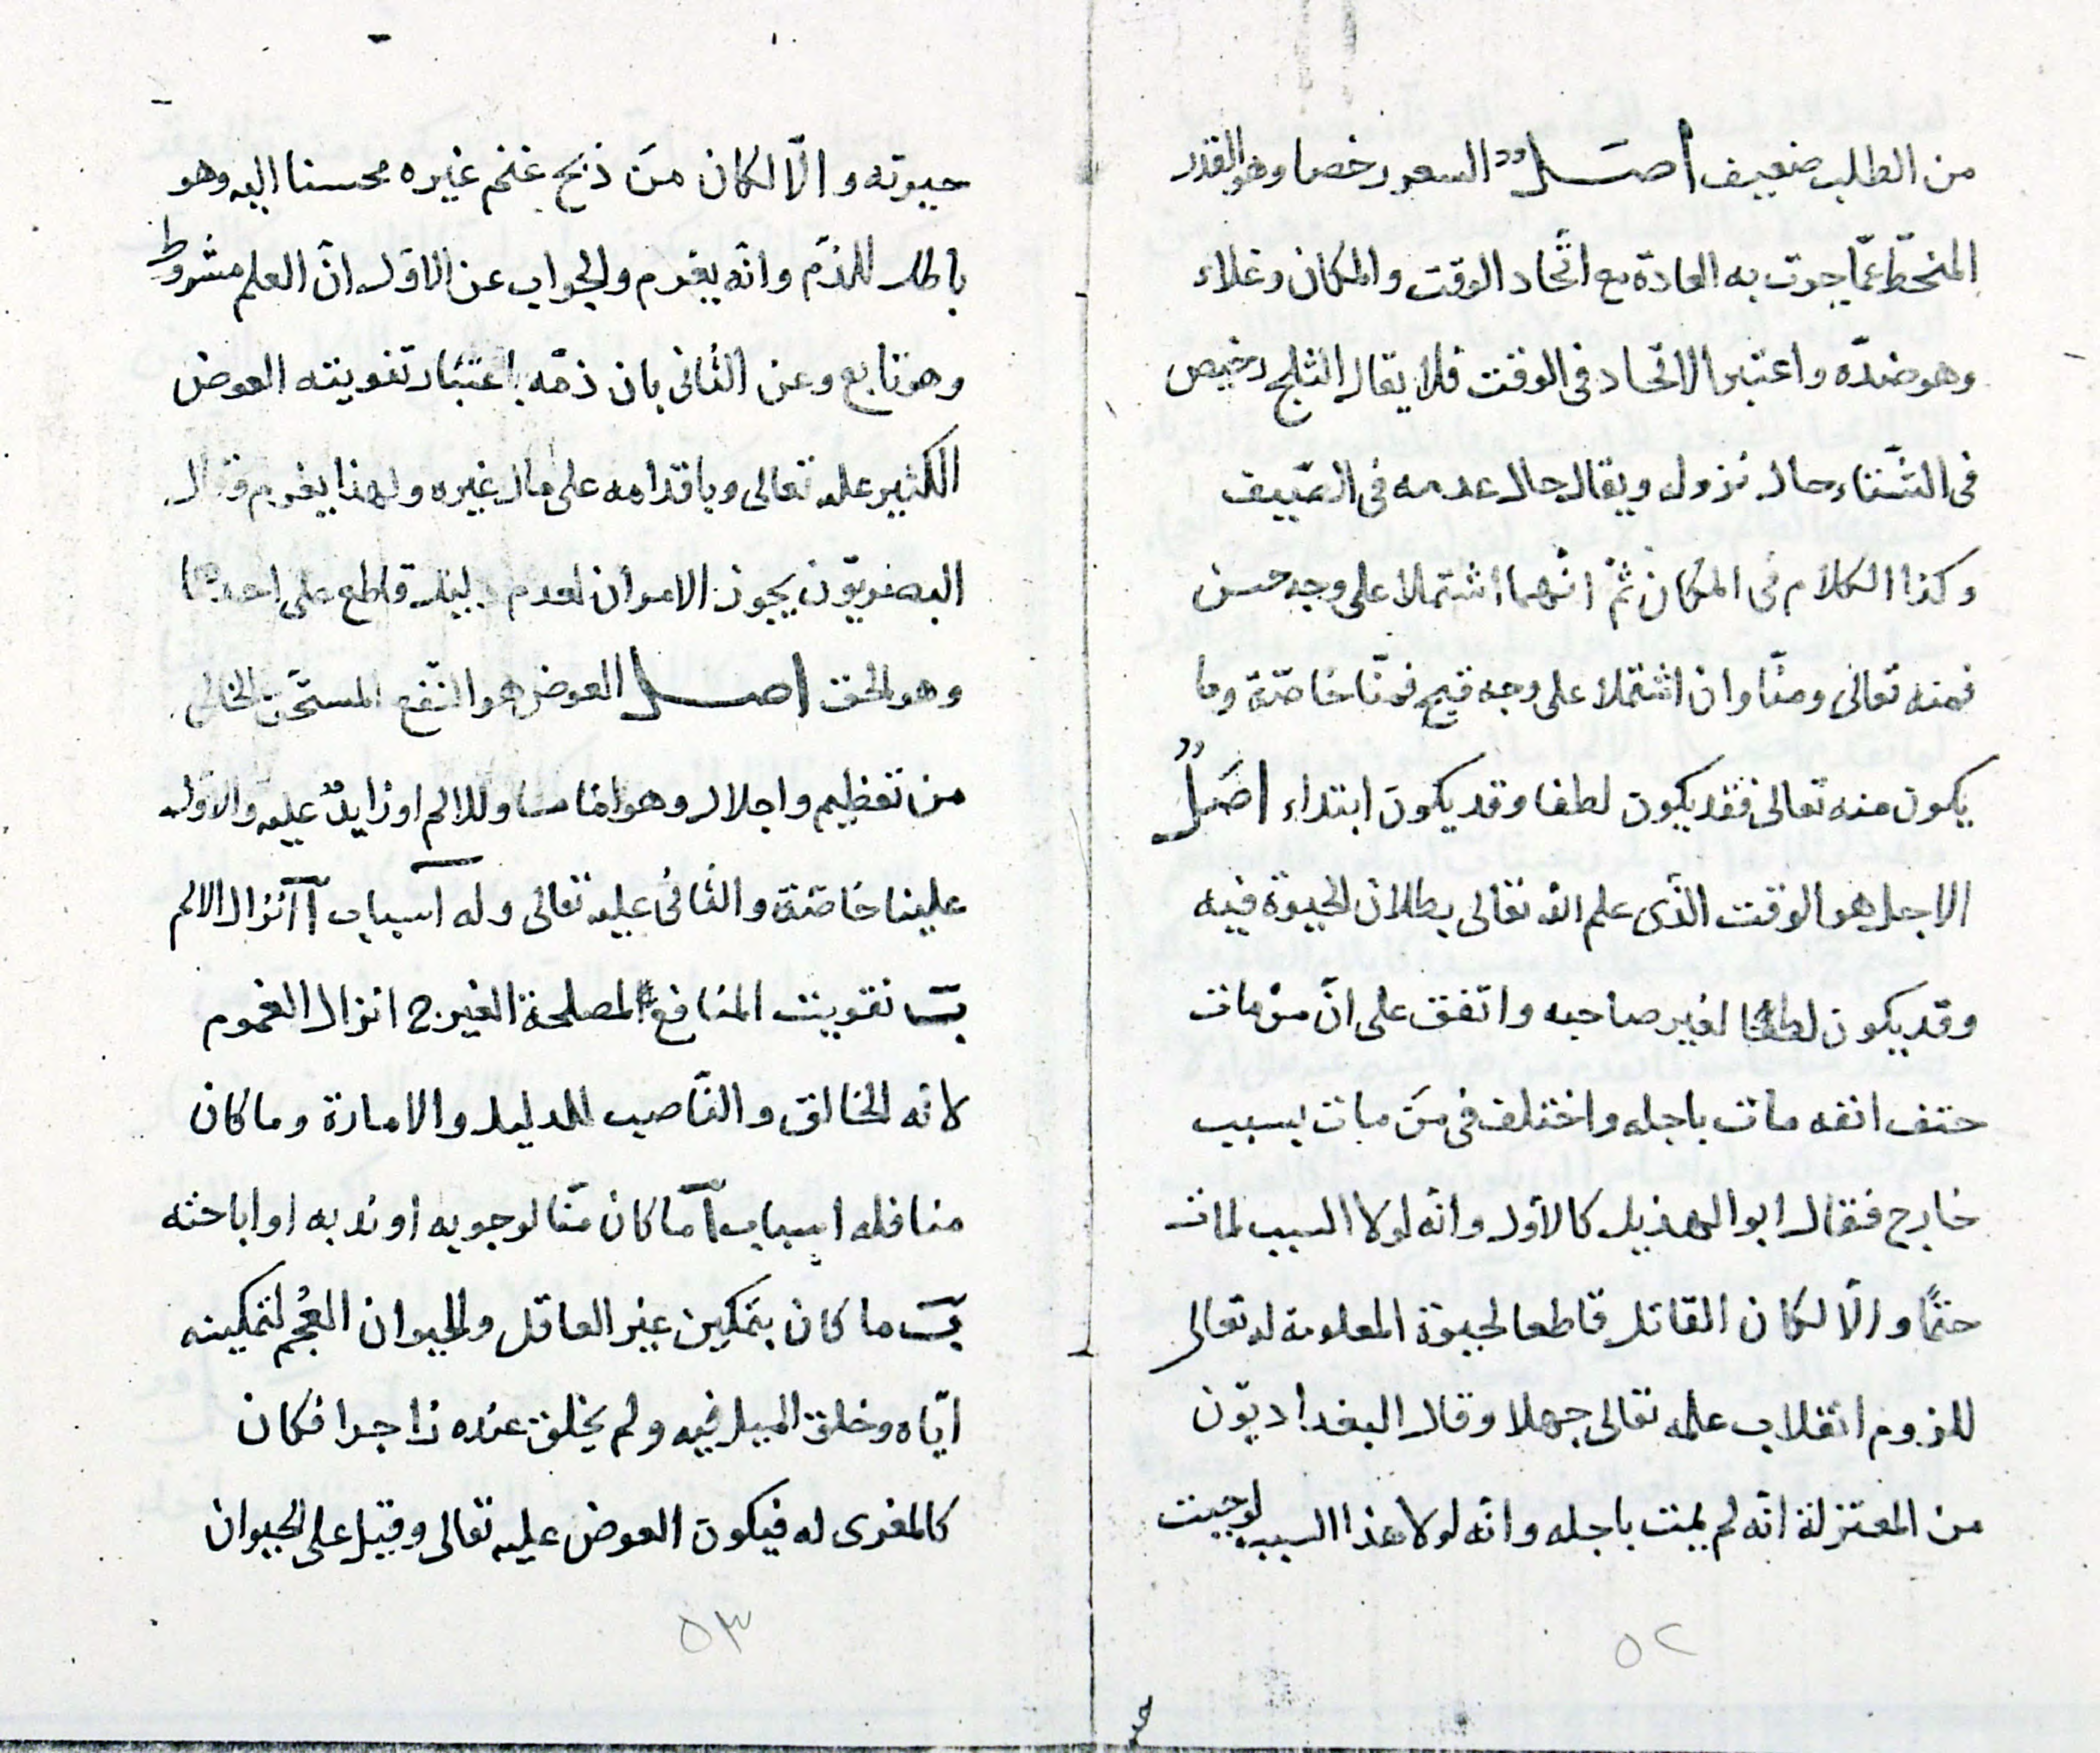 من الطلب ضعيف اصل السعر رخص وهو القدر
المنحطّ عمّا جرت به العادة مع اتّحاد الوقت والمكان وغلاء
وهو ضدّه واعتبر الاتحاد فى الوقت فلا يقال الثلج رخيص
فى الشّتاء حال نزول ويقال حال عدمه فى الصّيف
وكذا الكلام فى المكان ثمّ انّهما اشتملا على وجه حسن
فمنه تعالى ومنّا وان اشتملا على وجه قبيح فمنّا خاصّة وما
يكون منه تعالى فقد يكون لطفا وقد يكون ابتداء اصلٌ
الاجل هو الوقت الذّى علم الله تعالى بطلان الحيوة فيه
وقد يكون لطفا لغير صاحبه واتفق على انّ من مات
حتف انفه مات باجله واختلف فى مَن مات بسبب
خارج فقال ابو الهذيل كالاول وانّه لولا السبب لمات
حتمًا والّا لكان القاتل قاطعا لحيوة المعلومة له تعالى
للزوم انقلاب علمه تعالى جهلا وقال البغداديّون
من المعتزلة انّه لم يمت باجله وانّه لولا هذا السبب لوجبت
٥٢
حيوته والّا لكان مَن ذبح غنم غيره محسنا اليه وهو
باطل للذّم وانّه يغرم والجواب عن الاوّل انّ العلم مشروط
وهو تابع وعن الثانى بان ذمّه باعتبار تفويته العوض
الكثير عليه تعالى وباقدامه على مال غيره ولهذا يغرم وقال
البصريّون يجوز الامران لعدم دليل قاطع على احدهما
وهو الحق اصل العوض هو النّفع المستحّق الخالى
من تعظيم واجلال وهو امّا مساو للالم او زايدٌ عليه والاوّل
علينا خاصّة والثانى عليه تعالى وله اسباب آ انزال الالم
ب تفويت المنافع لمصلحة الغير ج انزال الغموم
لانه الخالق والنّاصب للدليل والامارة وما كان
منا فله اسباب آ ما كان منّا لوجوبه او ندبه او اباحته
ب ما كان بتمكين غير العاقل والحيوان العُجم لتمكينه
ايّاه وخلق الميل فيه ولم يخلق عنده زاجرا فكان
كالمغرى له فيكون العوض عليه تعالى وقيل على الحيوان
٥٣